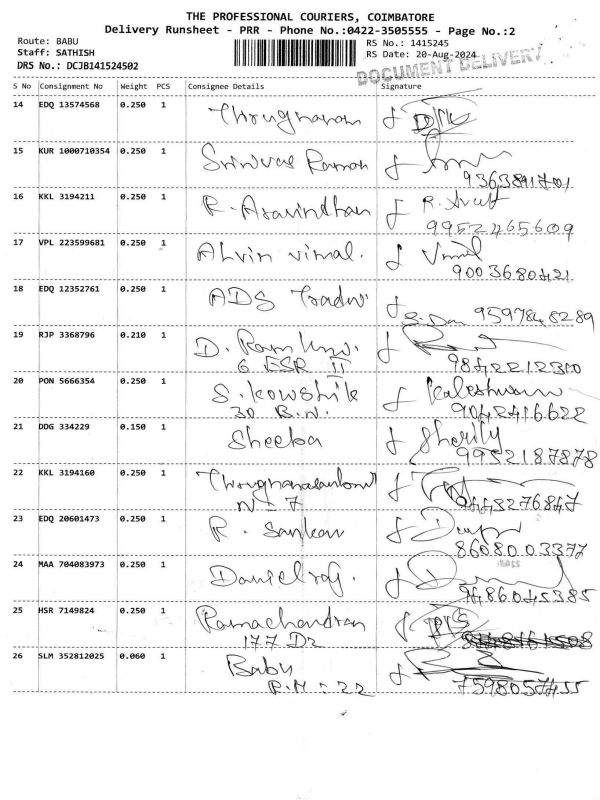 THE PROFESSIONAL COURIERS, COIMBATORE
Delivery Runsheet - PRR - Phone No.:0422-3505555 - Page No.:2
Route: BABU
RS No.: 1415245
Staff: SATHISH
RS Date: 20-Aug-2024
DRS No.: DCJB141524502
DOCUMENT DELIVERY
S No Consignment No Weight PCS Consignee Details Signature
14 EDQ 13574568 0.250 1
15 KUR 1000710354 0.250 1 Srinivas Raman
9363891701
16 KKL 3194211 0.250 1 R. Aravindhan R.
9952465609
17 VPL 223599681 0.250 1 Alvin vimal. Vimal
9003680421
18 EDQ 12352761 0.250 1 ADS
9597848289
19 RJP 3368796 0.210 1 D.
6 ESR II 9842212310
20 PON 5666354 0.250 1 S. Kowshik
30 B.N. 9042416622
21 DDG 334229 0.150 1 Sheeba
9952187878
22 KKL 3194160 0.250 1
N - 7
23 EDQ 20601473 0.250 1 R. Sankar
8608003377
24 MAA 704083973 0.250 1 Danielraj.
9486045385
25 HSR 7149824 0.250 1 Ramachandran
177 D2
26 SLM 352812025 0.060 1 Babu
P.N : 22 7598057455